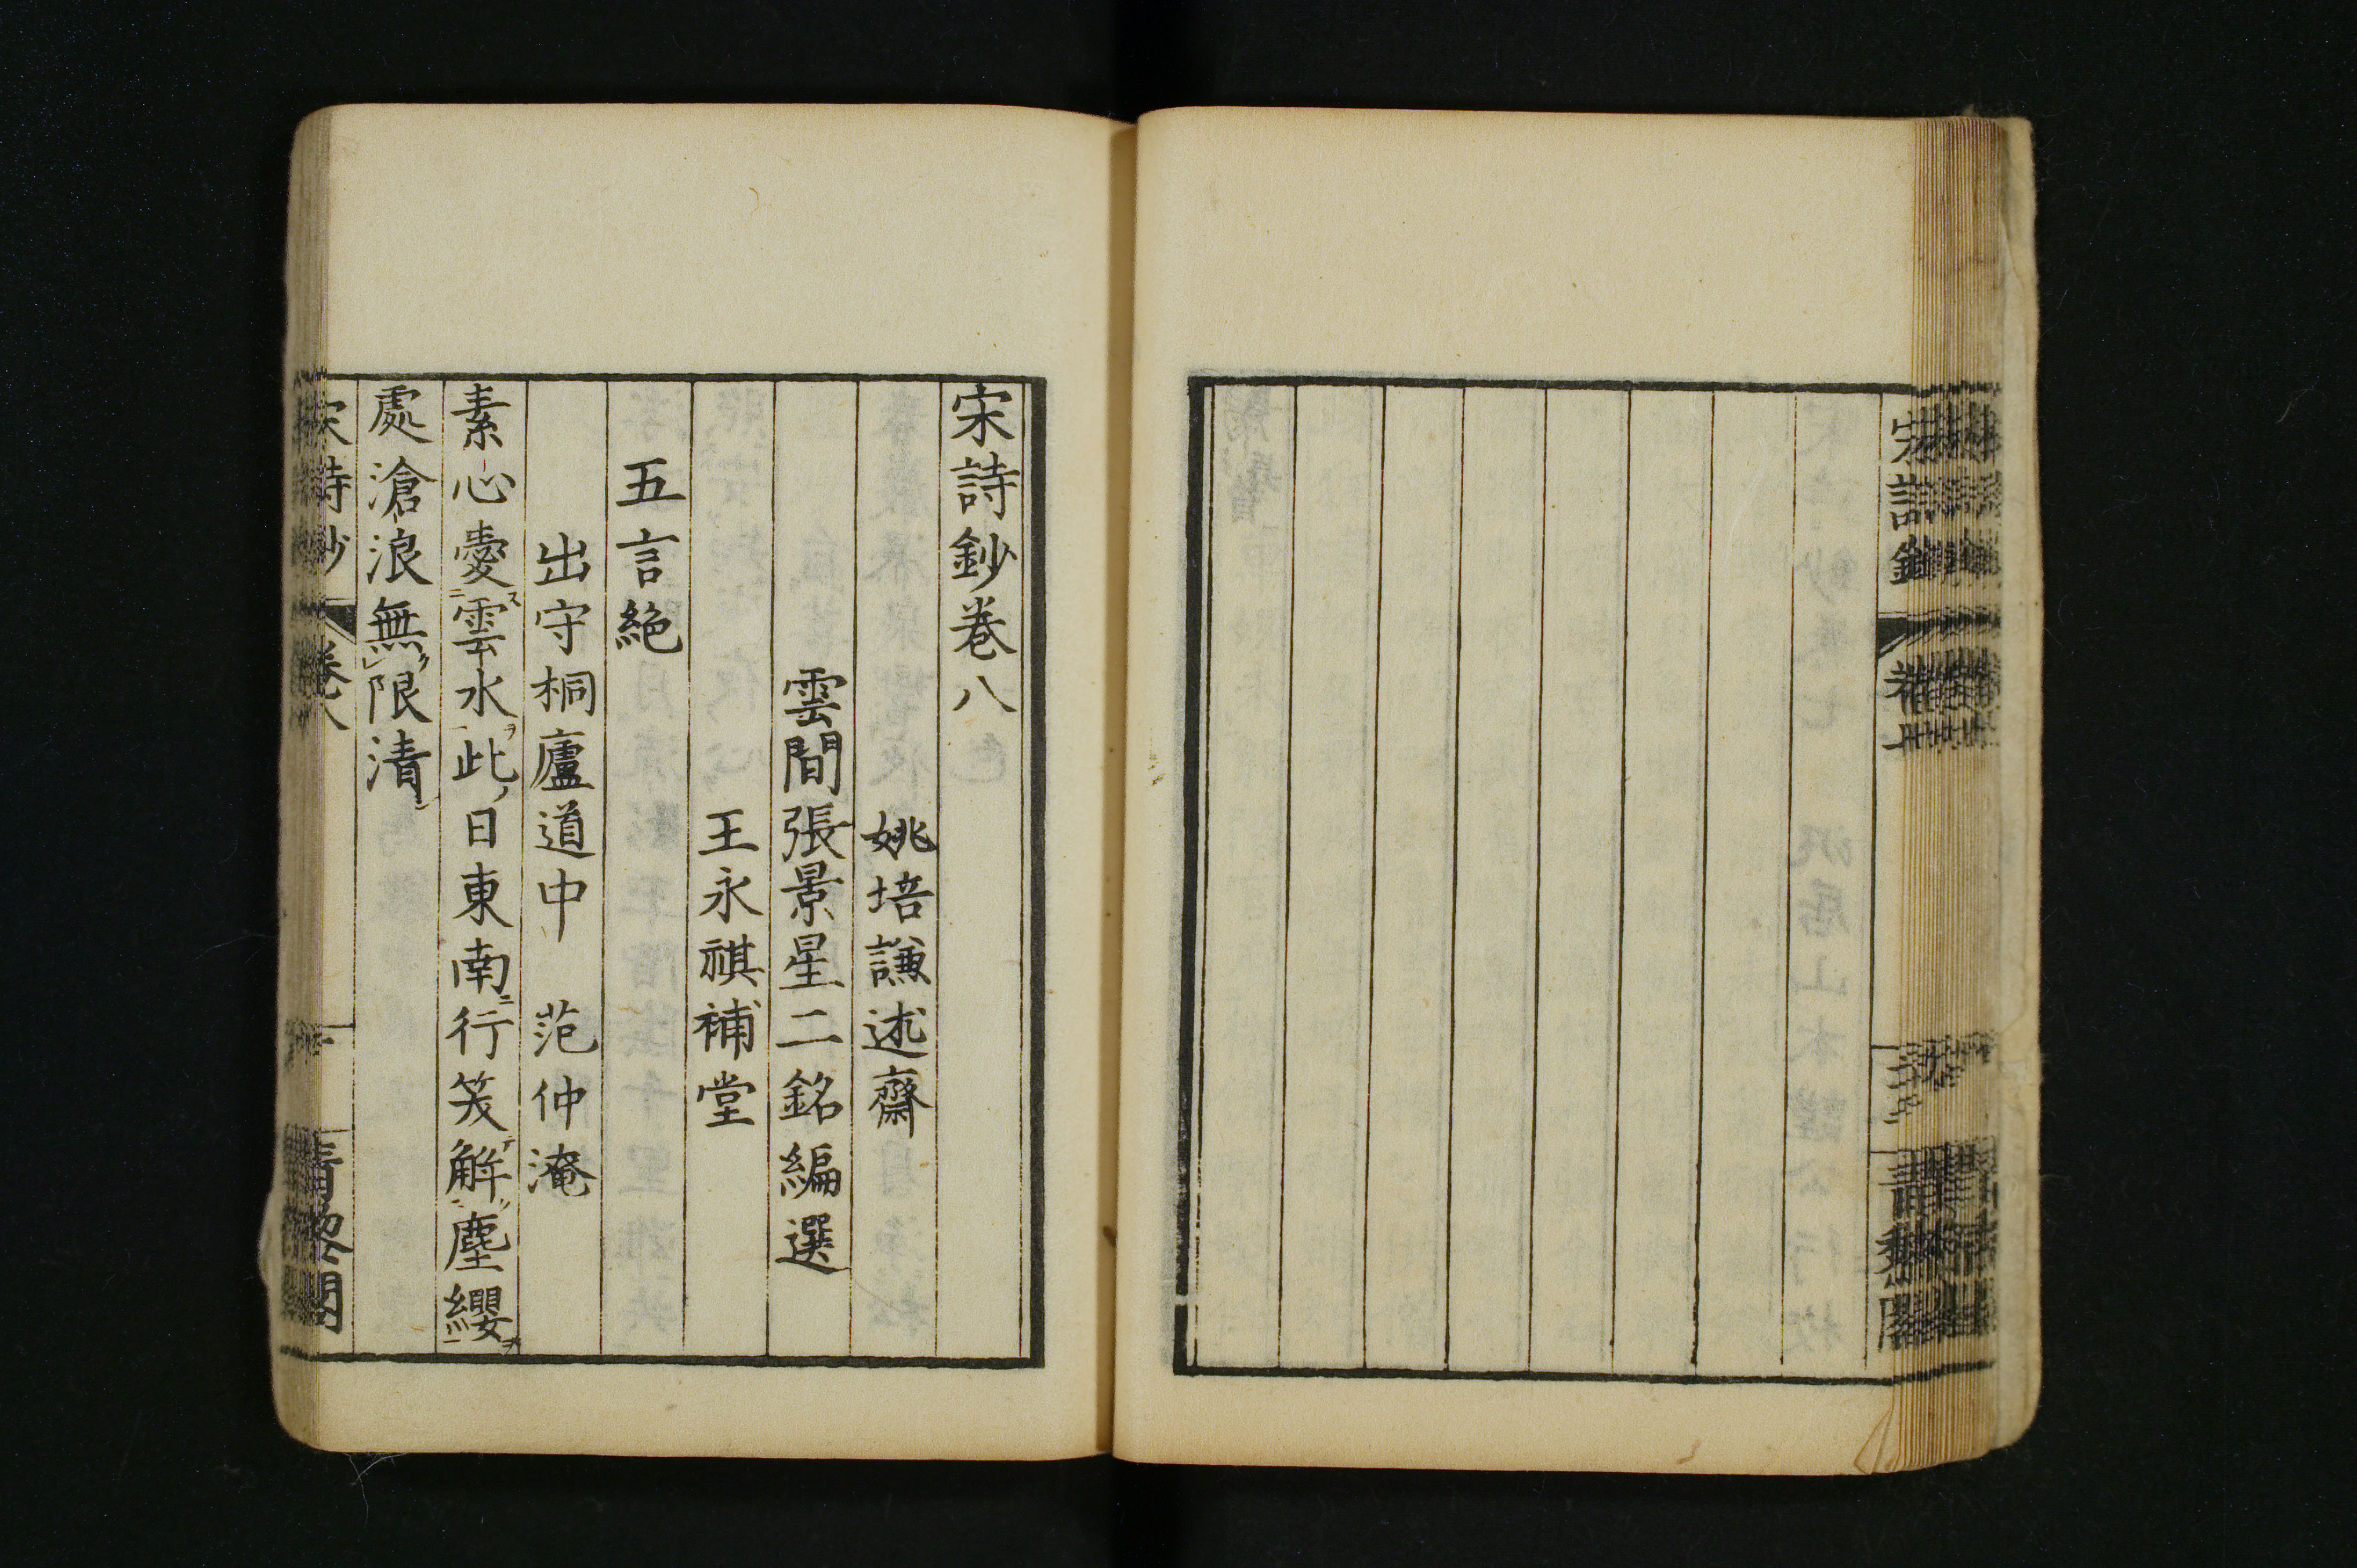 宋詩鈔卷八
姚培謙述齋
雲間張景星二銘編選
王永祺補堂
五言絶
出守桐廬道中 范仲淹
素心愛雲水此日東南行笑解塵纓
處滄浪無限清
宋詩鈔 卷八